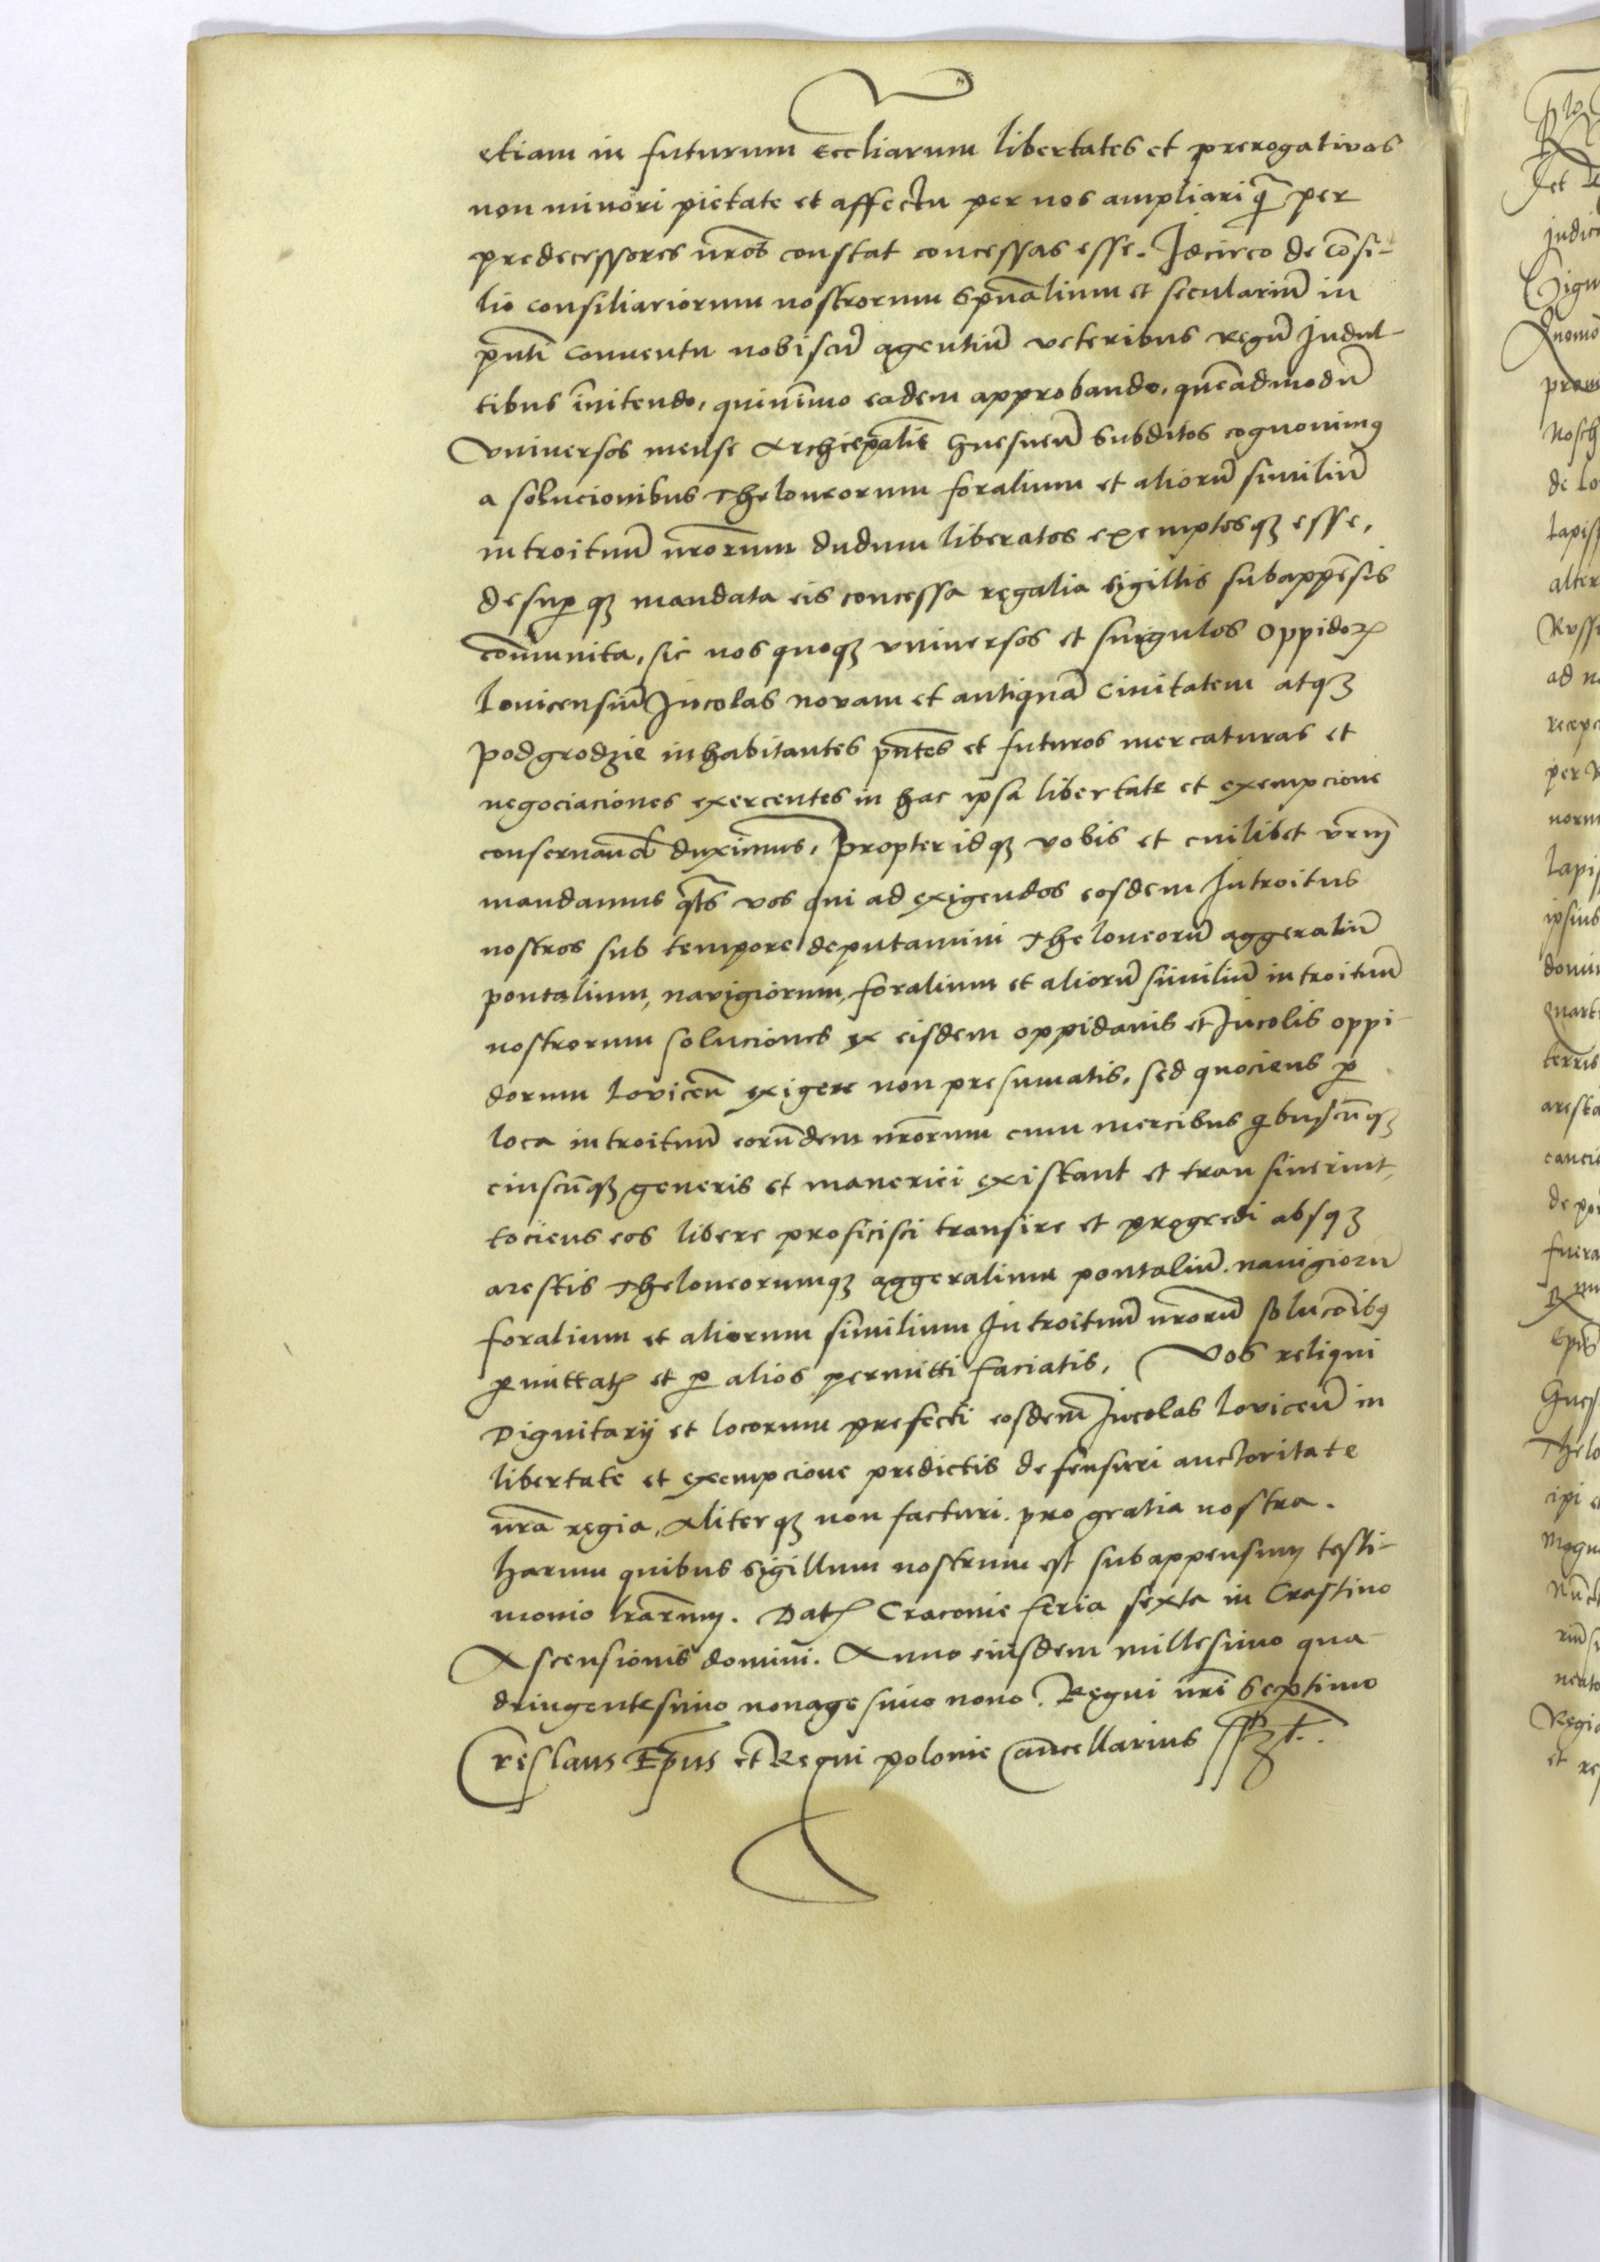 etiam in futurum Eccliarum libertates et prerogativas
non minori pietate et affectu per nos ampliari q̃ per
predecessores nros̃ constat concessas esse. Idcirco de Cõsi-
lio consiliariorum nostrorum spũalium et seculariũ in
pñti conventu nobiscũ agentiũ veteribus regũ Indul-
tibus iñitendo, quinĩmo eadem approbando, quẽadmodũ
Vniversos mense Archiepalis̃ Gnesneñ subditos cognovimꝯ
a solucionibus Theloneorum foralium et aliorũ similiũ
introituũ nrorum̃ dudum liberatos exemptosqꝫ esse,
desuꝑqꝫ mandata eis concessa regalia sigillis subappẽsis
cõmunita, sic nos quoqꝫ vniversos et singulos oppidoꝝ
Lovicensiũ Incolas novam et antiquã Civitatem atqꝫ
podgrodzie inhabitantes pñtes et futuros mercaturas et
negociaciones exercentes in hac ipsa libertate et exempcione
conservand̃ duximus, Propter idqꝫ vobis et cuilibet vrm̃
mandamus q̃ts vos qui ad exigendos eosdem Introitus
nostros sub tempore deputamini Theloneorũ aggeraliũ
pontalium, navigiorum, foralium et aliorũ similiũ introituũ
nostrorum soluciones ex eisdem oppidanis et Incolis oppi
dorum Loviceñ exigere non presumatis, sed quociens ꝑ
loca introituũ eorũdem nrorum̃ cum mercibus qbuscũqꝫ
cuiuscũqꝫ generis et maneriei existant et transiverint,
tociens eos libere proficisci transire et progredi absqꝫ
arestis Theloneorumqꝫ aggeralium pontaliũ. navigiorũ
foralium et aliorum similium Introituũ nrorũ solucõibꝯ
ꝑmittatꝭ et ꝑ alios permitti faciatis, Vos reliqui
Dignitarij et locorum prefecti eosdem̃ Incolas Loviceñ in
libertate et exempcione predictis defensuri auctoritate
nrã regia, Aliterqꝫ non facturi. pro gratia nostra.
harum quibus sigillum nostrum est subappensum testi-
monio lrarum̃. Datꝭ Cracovie feria sexta in Crastino
Ascensionis domini. Anno eiusdem millesimo qua
dringentesimo nonagesimo nono. Regni nrĩ septimo
Creslaus Ep̃us et Regni polonie Cancellarius sszt.